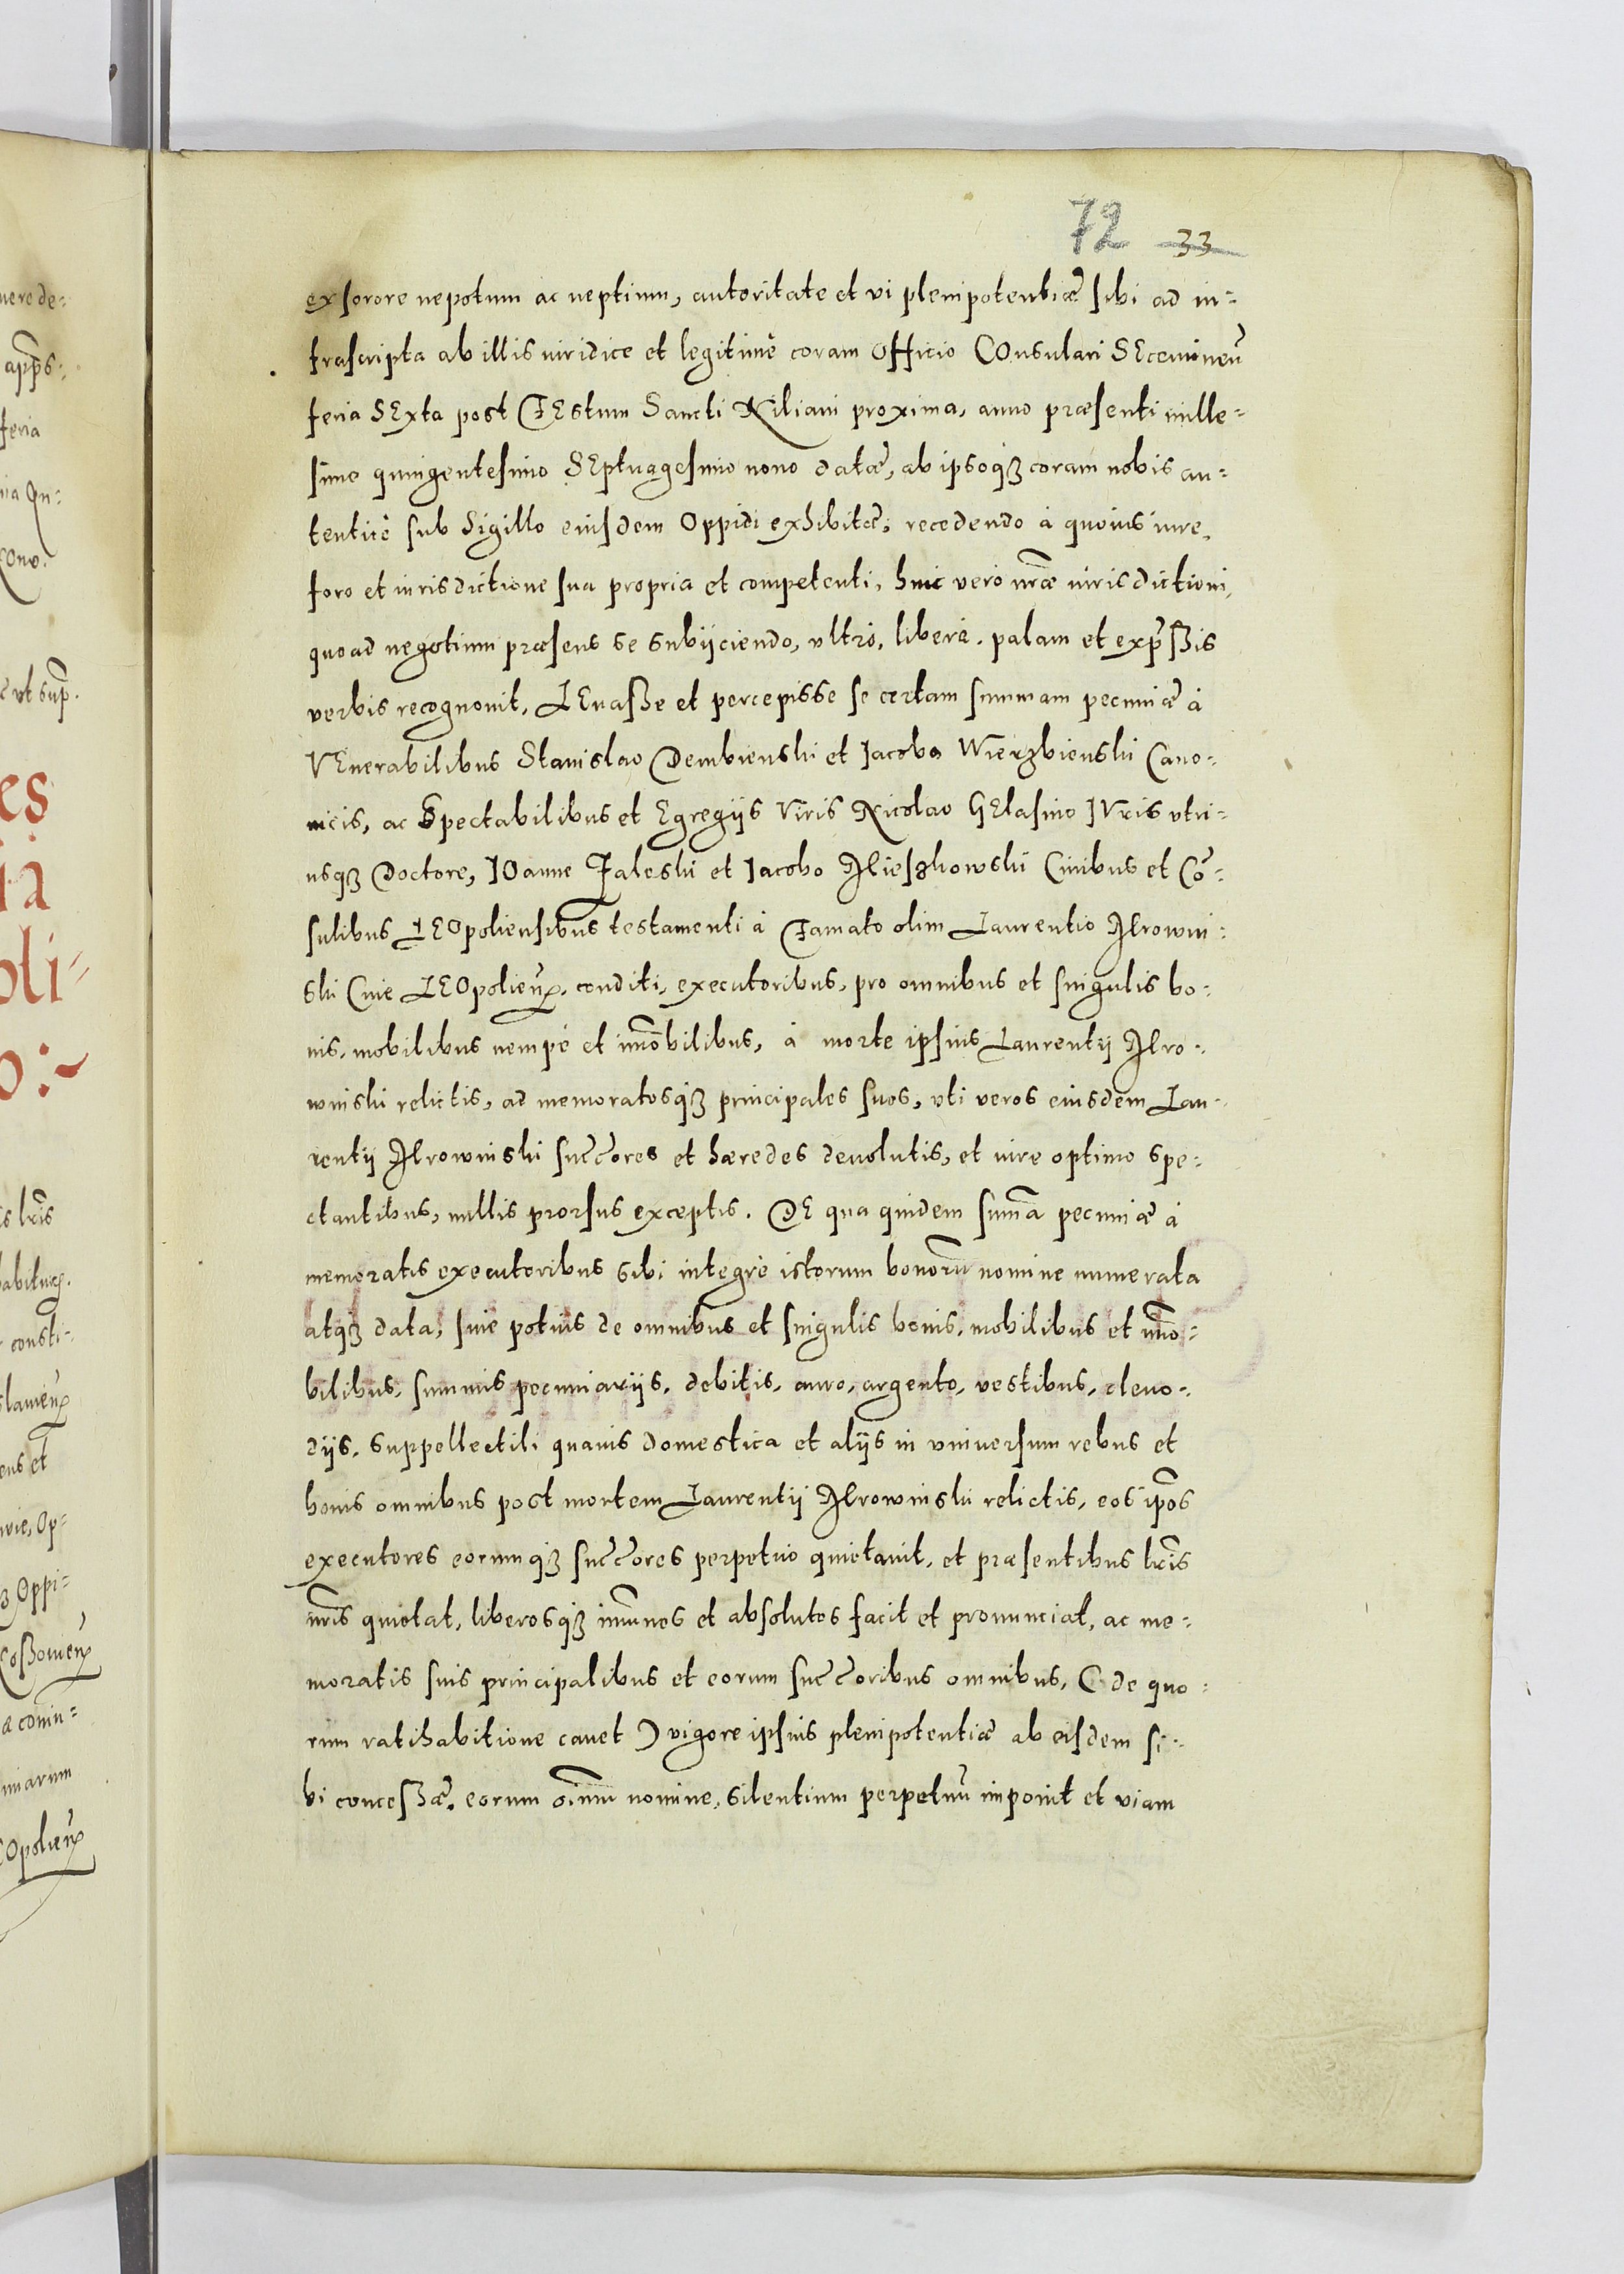 72 33
ex sorore nepotum ac neptium, autoritate et vi plenipotentiæ sibi ad in-
frascripta ab illis iuridice et legitimè coram Officio COnsulari SEceminen̄
feria SExta post FEstum Sancti Kiliani proxima, anno præsenti mille-
simo quingentesimo SEptuagesimo nono datæ, ab ipsoqȝ coram nobis au-
tenticè sub Sigillo eiusdem Oppidi exhibitæ, recedendo à quouis iure,
foro et iurisdictione sua propria et competenti, huic verò nr̄æ iurisdictioni,
quoad negotium præsens se subijciendo, vltrò, liberè, palam et exp̄ßis
verbis recognouit, LEuaße et percepisse se certam summam pecuniæ à
VEnerabilibus Stanislao Dembienski et Jacobo Wierzbienski Cano-
nicis, ac Spectabilibus et Egregijs Viris Nicolao GElasino IVris vtri-
usqȝ Doctore, IOanne Zaleski et Jacobo Mieszkowski Ciuibus et Cō-
sulibus LEOpoliensibus testamenti à Famato olim Laurentio Mrowin-
ski Ciue LEOpolien̄, conditi, executoribus, pro omnibus et singulis bo-
nis, mobilibus nempè et im̄obilibus, à morte ipsius Laurentij Mro-
winski relictis, ad memoratosqȝ principales suos, vti veros eiusdem Lau-
rentij Mrowinski succ̄ores et hæredes deuolutis, et iure optimo spe-
ctantibus, nullis prorsus exceptis. DE qua quidem sum̄a pecuniæ à
memoratis executoribus sibi integrè istorum bonorū nomine numerata
atqȝ data, siue potius de omnibus et singulis bonis, mobilibus et im̄o-
bilibus, summis pecuniarijs, debitis, auro, argento, vestibus, cleno-
dijs, suppellectili quauis domestica et alijs in vniuersum rebus et
bonis omnibus post mortem Laurentij Mrowinski relictis, eos ip̄os
executores eorumqȝ succ̄ores perpetuo quietauit, et præsentibus lr̄is
nr̄is quietat, liberosqȝ im̄unes et absolutos facit et pronunciat, ac me-
moratis suis principalibus et eorum succ̄oribus omnibus, (de quo-
rum ratihabitione cauet) vigore ipsius plenipotentiæ ab eisdem si-
bi conceßæ, eorum o͞ium nomine, silentium perpetuū imponit et viam